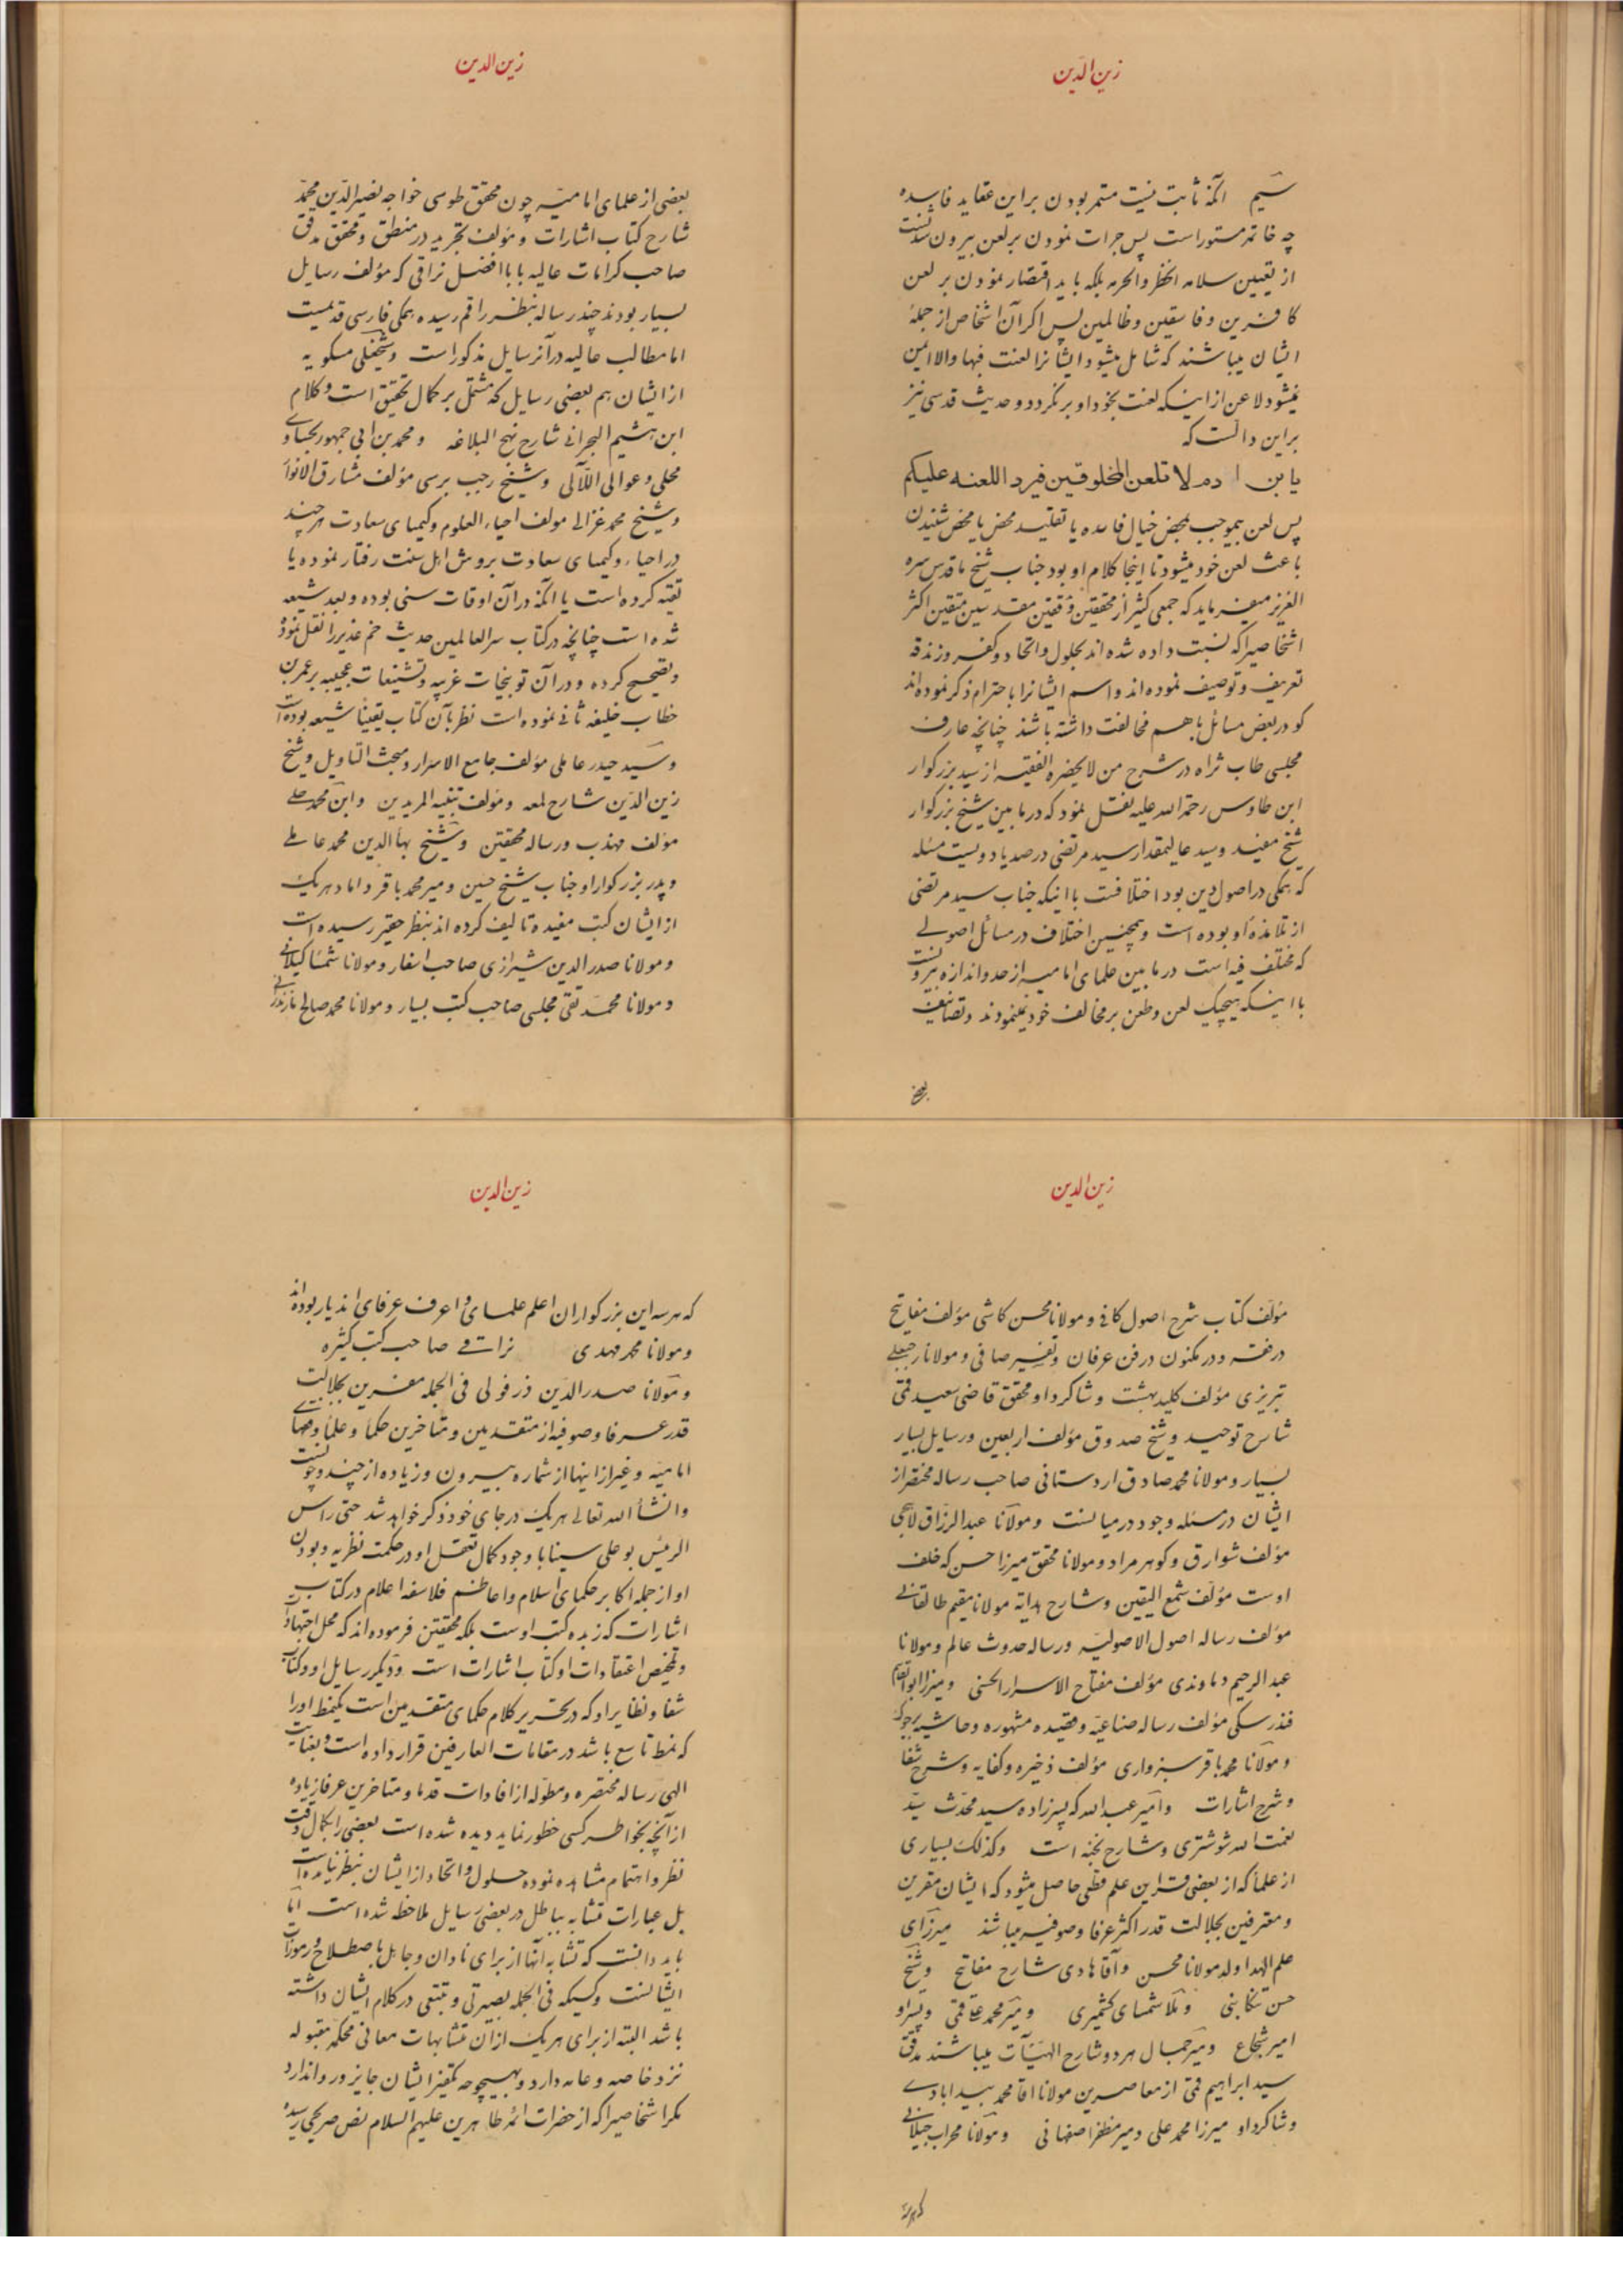 زین الدین
سیم آنکه ثابت نیست مستمر بودن بر این عقاید فاسده
چه خاتمه مستور است پس جرات نمودن بر لعن بیرون نیست
از تعیین سلامه الخطر والحرمه بلکه باید اقتصار نمودن بر لعن
کافرین و فاسقین و ظالمین پس اگر آن اشخاص از جملهٔ
ایشان میباشند که شامل میشود ایشانرا لعنت فبها والا ایمن
نمیشود لاعن از اینکه لعنت بخود او برگردد و حدیث قدسی نیز
براین دالست که
یابن ادم لا تلعن المخلوقین فیرد اللعنه علیکم
پس لعن بیموجب بمحض خیال فاسده یا تقلید محض یا محض شنیدن
باعث لعن خود میشود تا اینجا کلام او بود جناب شیخ ما قدس سره
العزیز میفرماید که جمعی کثیر از محققین و فقهین مقدسین متقین اکثر
اشخاصیرا که نسبت داده شده اند بحلول و اتحاد و کفر و زندقه
تعریف و توصیف نموده اند و اسم ایشانرا باحترام ذکر نموده اند
گو در بعض مسائل باهم مخالفت داشته باشند چنانچه عارف
مجلسی طاب ثراه در شرح من لایحضره الفقیه از سید بزرکوار
ابن طاوس رحمة الله علیه نقل نمود که در مابین شیخ بزرکوار
شیخ مفید و سید عالیمقدار سید مرتضی در صد یا دویست مسئله
که همکی در اصول دین بود اختلافست با اینکه جناب سید مرتضی
از تلامذهٔ او بوده است و همچنین اختلاف در مسائل اصولی
که مختلف فیه است در مابین علمای امامیه از حد و اندازه بیرونست
با اینکه هیچیک لعن و طعن بر مخالف خود نمینمودند و تصانیف
بعض
زین الدین
بعضی از علمای امامیه چون محقق طوسی خواجه نصیر الدین محمد
شارح کتاب اشارات و مؤلف تجرید در منطق و محقق مدقق
صاحب کرامات عالیه بابا افضل نراقی که مؤلف رسایل
بسیار بودند چند رساله بنظر راقم رسیده همکی فارسی قدیمست
اما مطالب عالیه در آن رسایل مذکور است و شیخعلی مسکویه
از ایشان هم بعضی رسایل که مشتمل بر کمال تحقیق است و کلام
ابن هشیم البحرانی شارح نهج البلاغه و محمد بن ابی جمهور لحساوی
محلی و عوالی اللآلی و شیخ رجب برسی مؤلف مشارق الانوار
و شیخ محمد غزالی مولف احیاء العلوم و کیمیای سعادت هرچند
در احیاء و کیمیای سعادت بروش اهل سنت رفتار نموده یا
تقیه کرده است یا آنکه در آن اوقات سنی بوده و بعد شیعه
شده است چنانچه در کتاب سر العالمین حدیث خم غدیر را نقل نموده
و تصحیح کرده و در آن توبیخات غریبه و تشنیعات عجیبه بر عمر بن
خطاب خلیفه ثانی نموده است نظر بآن کتاب یقینا شیعه بوده است
و سید حیدر عاملی مؤلف جامع الاسرار و مبحث التاویل و شیخ
زین الدین شارح لمعه و مؤلف تنبیه المریدین و ابن محمد حلی
مؤلف مهذب و رساله محققین و شیخ بهاء الدین محمد عاملی
و پدر بزرکوار او جناب شیخ حسین و میر محمد باقر داماد هریک
از ایشان کتب مفیده تالیف کرده اند بنظر حقیر رسیده است
و مولانا صدر الدین شیرازی صاحب اسفار و مولانا شمسا کیلانی
و مولانا محمد تقی مجلسی صاحب کتب بسیار و مولانا محمد صالح مازندرانی
زین الدین
مؤلف کتاب شرح اصول کافی و مولانا محسن کاشی مؤلف مفاتیح
در فقه و در مکنون در فن عرفان و تفسیر صافی و مولانا رجبعلی
تبریزی مؤلف کلید بهشت و شاکرد او محقق قاضی سعید قمی
شارح توحید و شیخ صدوق مؤلف اربعین و رسایل بسیار
بسیار و مولانا محمد صادق اردستانی صاحب رساله مختصر از
ایشان در مسئله وجود در میانست و مولانا عبد الرزاق لاهیجی
مؤلف شوارق و کوهر مراد و مولانا محقق میرزا حسن که خلف
اوست مؤلف شمع الیقین و شارح هدایه مولانا مقیم طالقانی
مؤلف رساله اصول الاصولیه و رساله حدوث عالم و مولانا
عبد الرحیم دماوندی مؤلف مفتاح الاسرار الحسنی و میرزا ابو القاسم
فندرسکی مؤلف رساله صناعیه و قصیده مشهوره و حاشیه بر جوک
و مولانا محمد باقر سبزواری مؤلف ذخیره و کفایه و شرح شفا
و شرح اشارات و امیر عبد الله که پیرزاده سید محدث سید
نعمت الله شوشتری و شارح نخبه است و کذلک بسیاری
از علما که از بعضی قراین علم قطعی حاصل میشود که ایشان مقرین
و معترفین بجلالت قدر اکثر عرفا و صوفیه میباشند میرزای
علم الهدا ولد مولانا محسن و آقا هادی شارح مفاتیح و شیخ
حسن تنکابنی و ملا شمسای کشمیری و میر محمد علی قمی و پسر او
امیر شجاع و میر جمال هر دو شارح الهیات میباشند مدقق
سید ابراهیم قمی از معاصرین مولانا اقا محمد بیدابادی
و شاکرد او میرزا محمد علی و میر مظفر اصفهانی و مولانا محراب جیلانی
که هر سه
زین الدین
که هر سه این بزرکواران اعلم علمای و اعرف عرفای اندیار بوده اند
و مولانا محمد مهدی نراقی صاحب کتب کثیره
و مولانا صدر الدین ذزفولی فی الجمله مقرین بجلالت
قدر عرفا و صوفیه از متقدمین و متاخرین حکما و علما و فقهای
امامیه و غیر از اینها از شماره بیرون و زیاده از چند و چونست
وانشاء الله تعالی هریک در جای خود ذکر خواهد شد حتی راس
الرئیس بو علی سینا با وجود کمال تعقل او در حکمت نظریه و بودن
او از جمله اکابر حکمای اسلام و اعاظم فلاسفه اعلام در کتاب
اشارات که زبده کتب اوست بلکه محققین فرموده اند که محل اجتهادات
و تلخیص اعتقادات او کتاب اشارات است و دیکر رسایل او و کتاب
شفا و نظایر او که در تحریر کلام حکمای متقدمین است یکنمط او را
که نمط تاسع باشد در مقامات العارفین قرار داده است و بعنایت
الهی رساله مختصره و مطوله از افادات قدما و متاخرین عرفا زیاده
از آنچه بخواطر کسی خطور نماید دیده شده است بعضی را بکمال دقت
نظر و اهتمام مشاهده نموده حلول و اتحاد از ایشان بنظر نیامده است
بل عبارات متشابه بباطل در بعضی رسایل ملاحظه شده است اما
باید دانست که تشابه آنها از برای نادان و جاهل باصطلاح و رموزات
ایشانست و کسیکه فی الجمله بصیرتی و تتبعی در کلام ایشان داشته
باشد البته از برای هریک از آن متشابهات معانی محکمه مقبوله
نزد خاصه و عامه دارد و بهیچوجه تکفیر ایشان جایز و روا ندارد
مکر اشخاصیرا که از حضرات ائمه طاهرین علیهم السلام نص صریحی رسیده